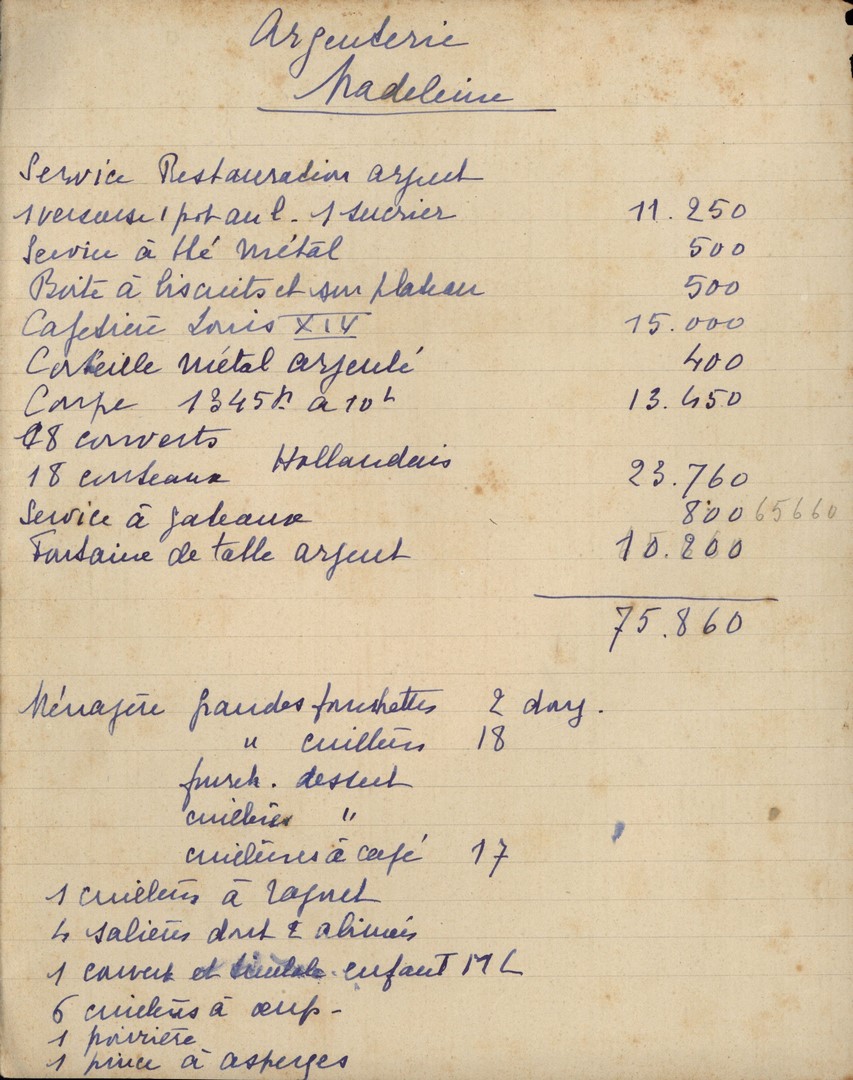 Argenterie
Madeleine
Service Restauration argent
1 verseuse 1 pot au l. 1 sucrier 11.250
Service à thé métal 500
Boite à biscuits et son plateau 500
Cafetière Louis XIV 15.000
Corbeille métal argenté 400
Coupe 1345 gr à 10 h 13.450
18 couverts
18 couteaux Hollandais 23.760
Service à gateaux 800 65660
Fontaine de table argent 10.200
75.860
Ménagère grandes fourchettes 2 douz.
" cuillères 18
fourch. dessert
cuillères "
cuillères à café 17
1 cuillère à ragout
4 salières dont 2 abimés
1 couvert et timbale enfant ML
6 cuillères à œuf -
1 poivrière
1 pince à asperges